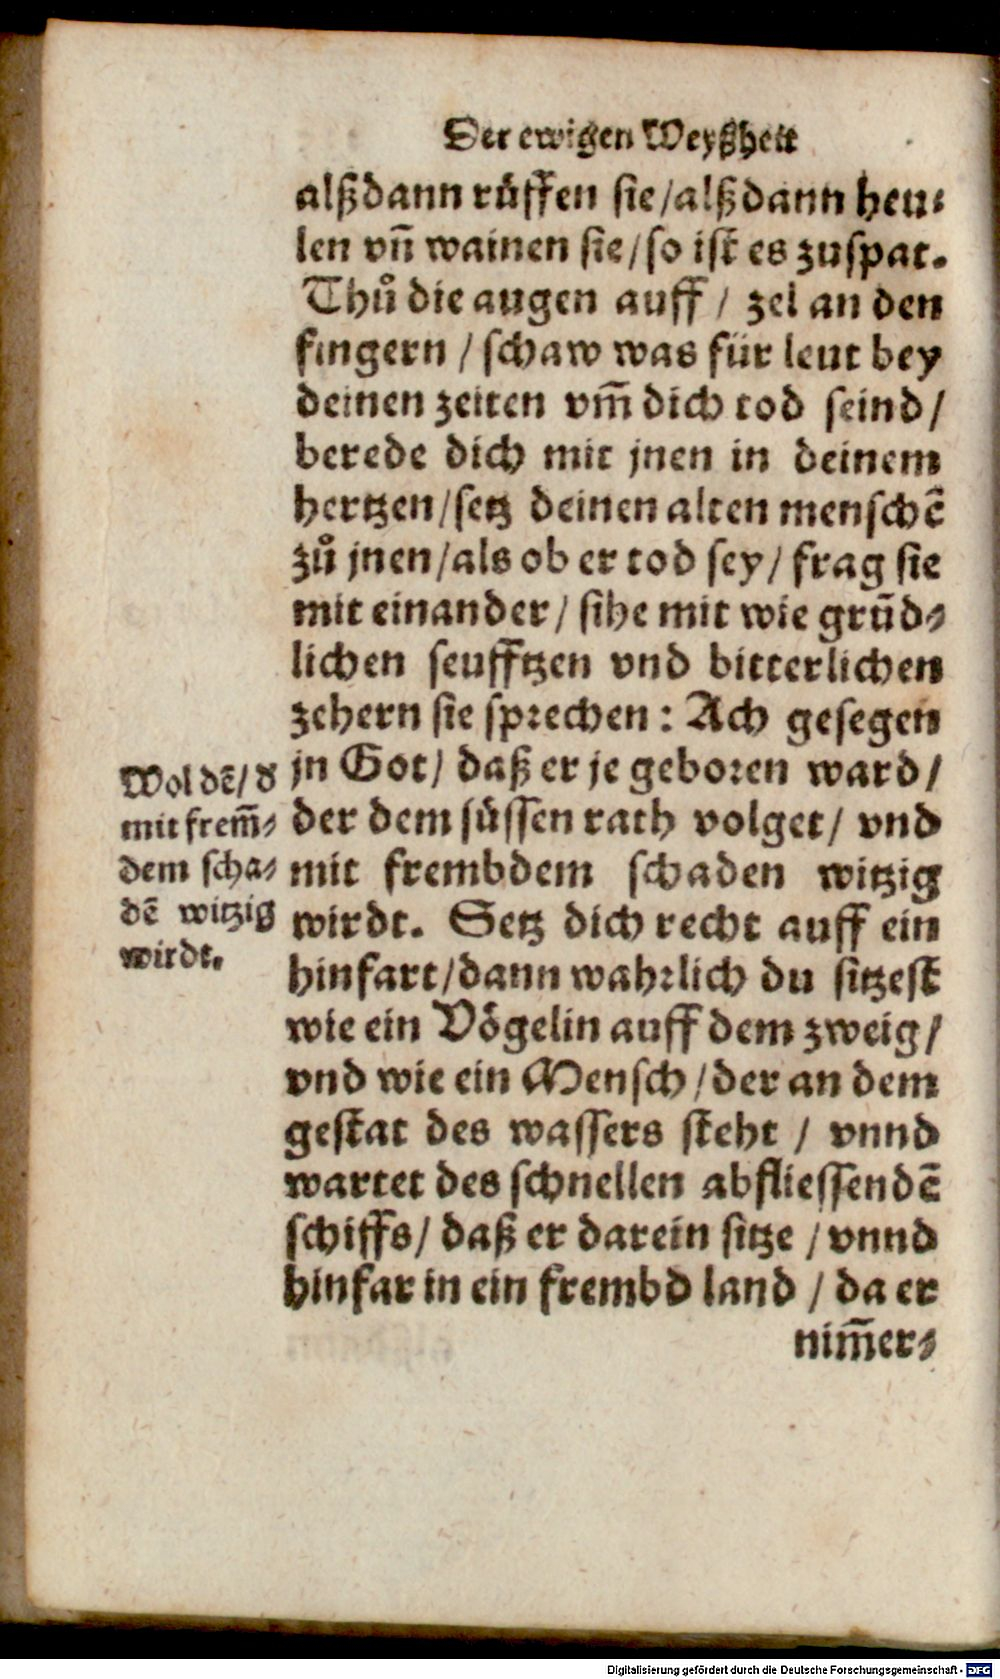 Der ewigen Weyßheit
alßdann rüffen sie/alßdann heu-
len vñ wainen sie/so ist es zuspat.
Thů die augen auff / zel an den
fingern / schaw was für leut bey
deinen zeiten vm̃ dich tod seind/
berede dich mit jnen in deinem
hertzen/setz deinen alten menschẽ
zů jnen/als ob er tod sey/ frag sie
mit einander/ sihe mit wie grũd-
lichen seufftzen vnd bitterlichen
zehern sie sprechen: Ach gesegen
jn Got/ daß er je geboren ward/
der dem süssen rath volget/ vnd
mit frembdem schaden witzig
wirdt. Setz dich recht auff ein
hinfart/dann wahrlich du sitzest
wie ein Vögelin auff dem zweig/
vnd wie ein Mensch/der an dem
gestat des wassers steht / vnnd
wartet des schnellen abfliessendẽ
schiffs/ daß er darein sitze /vnnd
hinfar in ein frembd land / da er
nim̃er-
Wol dẽ/ d
mit frem̃-
dem scha-
dẽ witzig
wirdt.
Digitalisierung gefördert durch die Deutsche Forschungsgemeinschaft - DFG